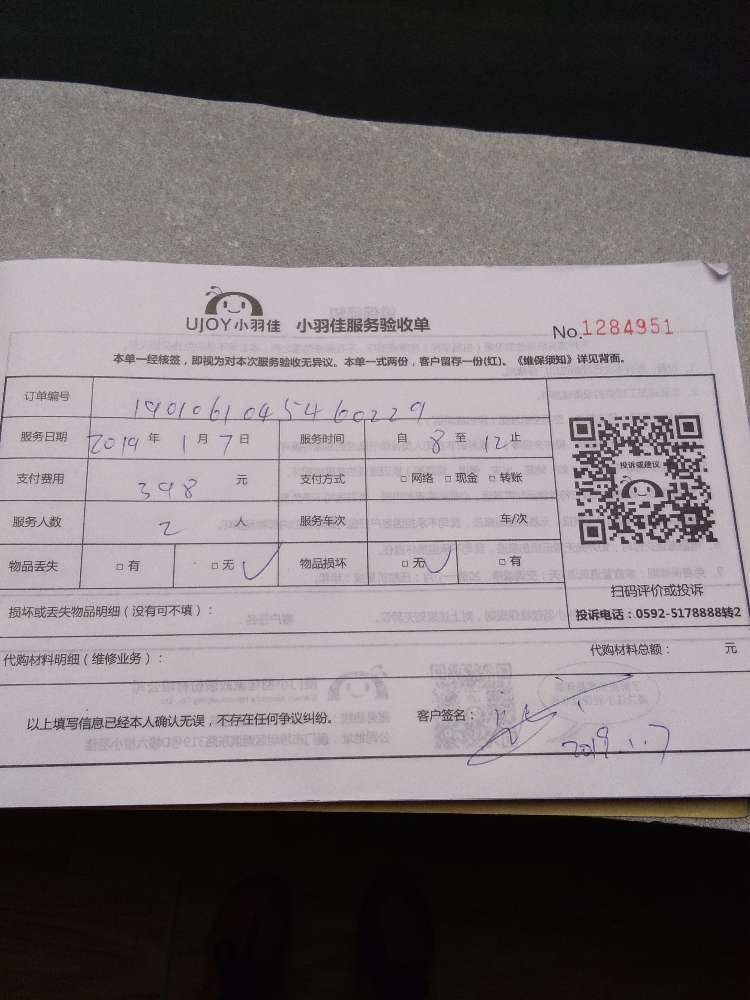 UJOY小羽佳 小羽佳服务验收单 No.1284951
本单一经核签，即视为对本次服务验收无异议。本单一式两份，客户留存一份(红)。《维保须知》详见背面。
订单编号 1901061045460229
服务日期 2019年1月7日 服务时间 自8至12止
支付费用 398元 支付方式 □网络 □现金 □转账
服务人数 2人 服务车次 车/次
物品丢失 □有 □无√ 物品损坏 □无√ □有
投诉或建议
扫码评价或投诉
投诉电话：0592-5178888转2
损坏或丢失物品明细（没有可不填）：
代购材料明细（维修业务）： 代购材料总额： 元
以上填写信息已经本人确认无误，不存在任何争议纠纷。 客户签名：
2019.1.7